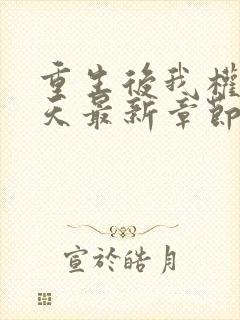 重生後我權
天最新章節
宣於皓月